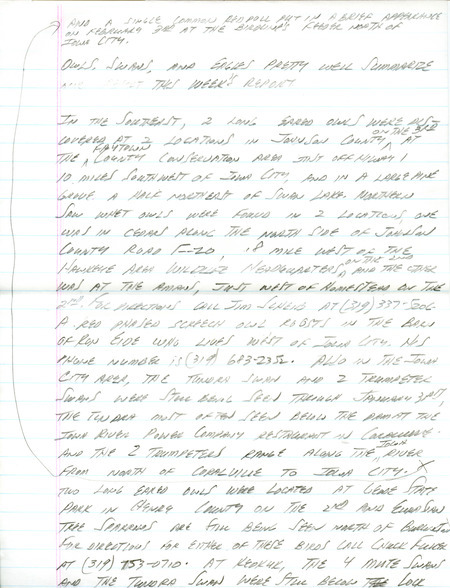 AND A SINGLE COMMON REDPOLL PUT IN A BRIEF APPEARANCE
ON FEBRUARY 3RD AT THE FEEDER NORTH OF
IOWA CITY.
OWLS, SWANS, AND EAGLES PRETTY WELL SUMMARIZE
THIS WEEK'S REPORT
IN THE SOUTHEAST, 2 LONG EARED OWLS WERE
COVERED AT 2 LOCATIONS IN JOHNSON COUNTY ON THE 3RD AT
THE COUNTY CONSERVATION AREA JUST OFF HIWAY 1
10 MILES SOUTHWEST OF IOWA CITY, AND IN A LARGE PINE
GROVE A HALF NORTHEAST OF SWAN LAKE. NORTHERN
SAW WHET OWLS WERE FOUND IN 2 LOCATIONS, ONE
WAS IN CEDARS ALONG THE NORTH SIDE OF JOHNSON
COUNTY ROAD F-20, MILE WEST OF THE
HAWKEYE AREA WILDLIFE HEADQUARTERS ON THE 2ND AND THE OTHER
WAS AT THE AMANAS, JUST WEST OF HOMESTEAD ON THE
2ND. FOR DIRECTIONS CALL JIM AT (319) 337-5206
A RED PHASED SCREECH OWL ROOSTS IN THE BARN
OF RON EIDE WHO LIVES WEST OF IOWA CITY. HIS
PHONE NUMBER IS (319) 683-2352. ALSO IN THE IOWA
CITY AREA, THE TUNDRA SWAN AND 2 TRUMPETER
SWANS WERE STILL BEING SEEN THROUGH JANUARY 31ST,
THE TUNDRA MOST OFTEN SEEN BELOW THE DAM AT THE
IOWA RIVER POWER COMPANY RESTAURANT IN CORALVILLE.
AND THE 2 TRUMPETERS RANGE ALONG THE IOWA RIVER
FROM NORTH OF CORALVILLE TO IOWA CITY. X
TWO LONG EARED OWLS WERE LOCATED AT GEODE STATE
PARK IN HENRY COUNTY ON THE 2ND AND EURASIAN
TREE SPARROWS ARE STILL BEING SEEN NORTH OF BURLINGTON
FOR DIRECTIONS FOR EITHER OF THESE BIRDS CALL CHUCK FULLER
AT (319) 753-0710. AT KEOKUK, THE 4 MUTE SWANS
AND THE TUNDRA SWAN WERE STILL BELOW THE LOCK